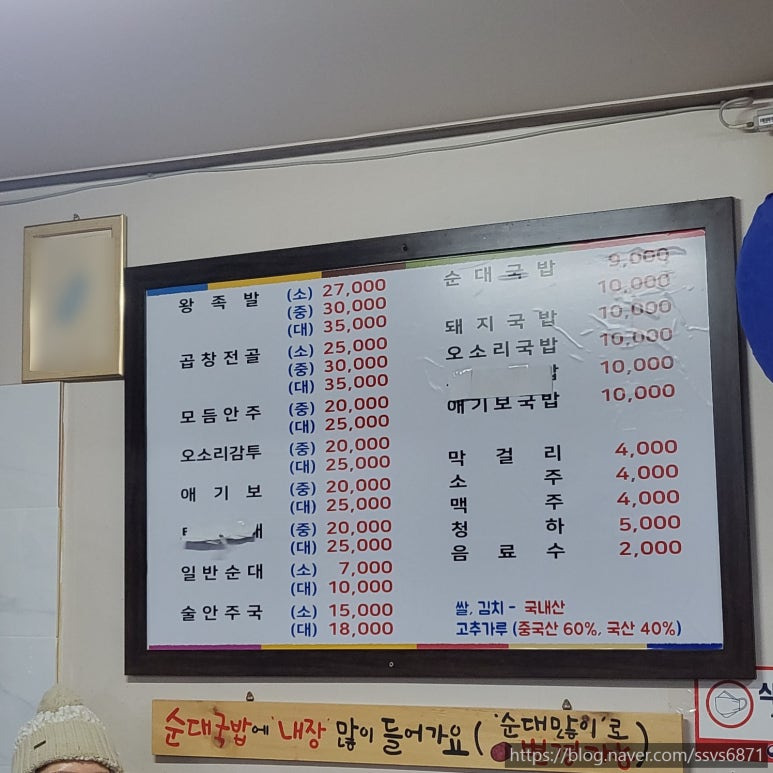 왕 족 발 (소) 27,000
(중) 30,000
(대) 35,000
곱창전골 (소) 25,000
(중) 30,000
(대) 35,000
모듬안주 (중) 20,000
(대) 25,000
오소리감투 (중) 20,000
(대) 25,000
애 기 보 (중) 20,000
(대) 25,000
(중) 20,000
(대) 25,000
일반순대 (소) 7,000
(대) 10,000
술안주국 (소) 15,000
(대) 18,000
순 대 국 밥 9,000
10,000
돼 지 국 밥 10,000
오소리국밥 10,000
밥 10,000
애기보국밥 10,000
막 걸 리 4,000
소 주 4,000
맥 주 4,000
청 하 5,000
음 료 수 2,000
쌀, 김치 - 국내산
고추가루 (중국산 60%, 국산 40%)
순대국밥에 '내장' 많이 들어가요 ( '순대만늘이'로
변경가능 )
https://blog.naver.com/ssvs6871